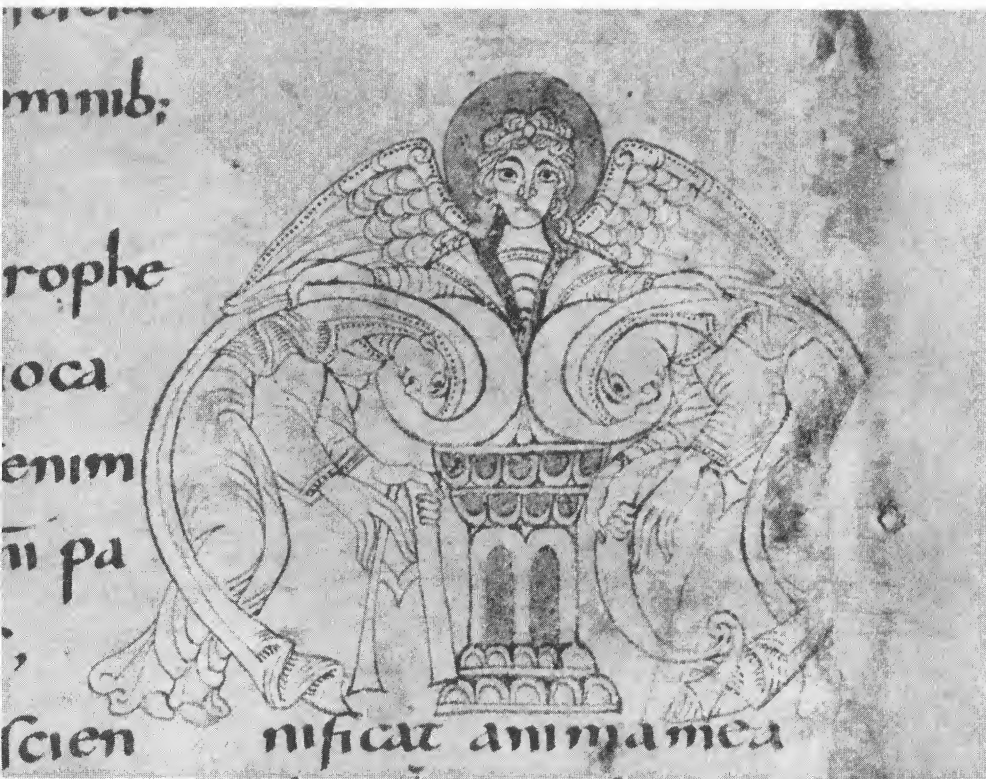 omnib;
rophe
oca
enim
pa
;
scien
nificat anima mea